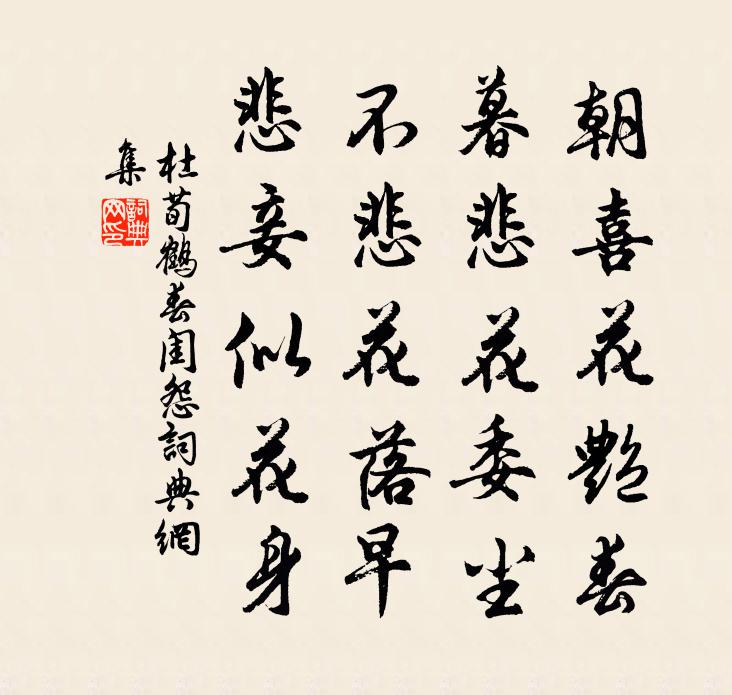 朝喜花艷春
暮悲花委尘
不悲花落早
悲妾似花身
杜荀鶴春閨怨詞典網
集
詞典
网印